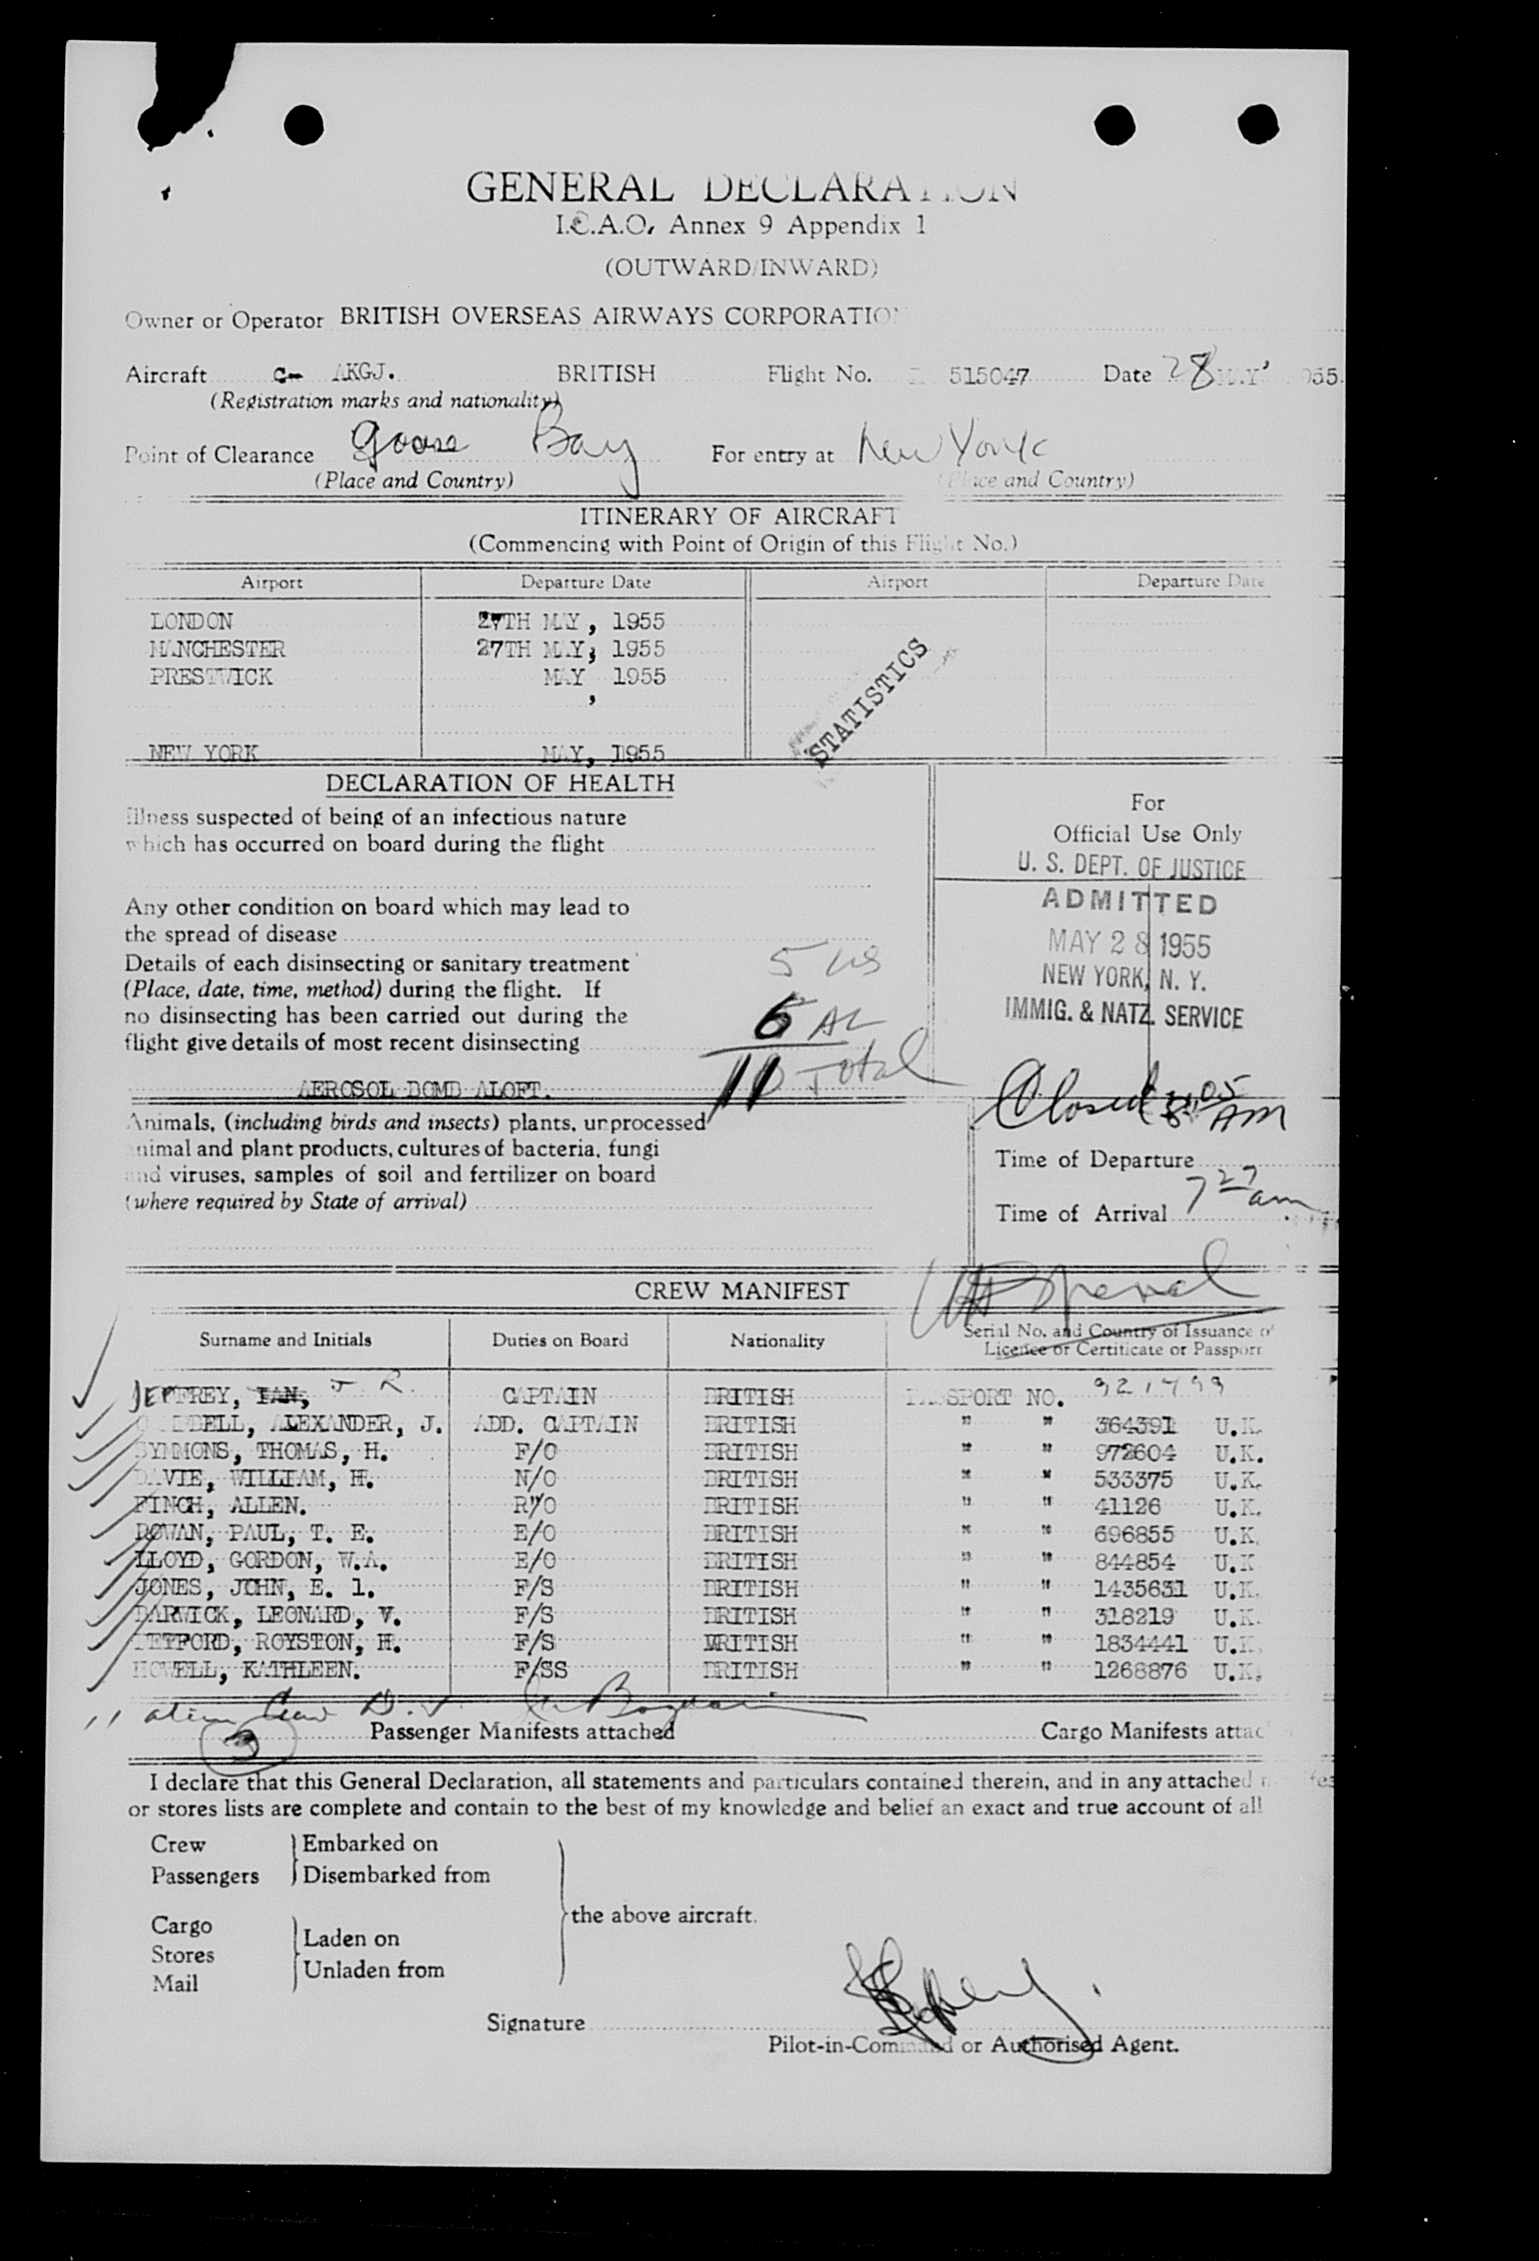 GENERAL DECLARATION
I.C.A.O. Annex 9 Appendix 1
(OUTWARD/INWARD)
Owner or Operator BRITISH OVERSEAS AIRWAYS CORPORATION
Aircraft G- AKGJ. BRITISH Flight No. 515047 Date 28 MAY 1955.
(Registration marks and nationality)
Point of Clearance Goose Bay For entry at New York
(Place and Country) (Place and Country)
ITINERARY OF AIRCRAFT
(Commencing with Point of Origin of this Flight No.)
Airport Departure Date Airport Departure Date
LONDON 27TH MAY, 1955
MANCHESTER 27TH MAY, 1955
PRESTWICK MAY, 1955
STATISTICS
NEW YORK MAY, 1955
DECLARATION OF HEALTH
Illness suspected of being of an infectious nature
which has occurred on board during the flight
Any other condition on board which may lead to
the spread of disease
Details of each disinsecting or sanitary treatment
(Place, date, time, method) during the flight. If
no disinsecting has been carried out during the
flight give details of most recent disinsecting
AEROSOL BOMB ALOFT.
5 US
6 AL
11 Total
For
Official Use Only
U. S. DEPT. OF JUSTICE
ADMITTED
MAY 28 1955
NEW YORK, N. Y.
IMMIG. & NATZ. SERVICE
Closed 8:05 AM
Animals, (including birds and insects) plants, unprocessed
animal and plant products, cultures of bacteria, fungi
and viruses, samples of soil and fertilizer on board
(where required by State of arrival)
Time of Departure
Time of Arrival 7 27 am
CREW MANIFEST
Surname and Initials Duties on Board Nationality Serial No. and Country of Issuance of
Licence or Certificate or Passport
JEFFREY, IAN, J. R. CAPTAIN BRITISH PASSPORT NO. 921799
DELL, ALEXANDER, J. ADD. CAPTAIN BRITISH " " 364391 U.K.
SYMMONS, THOMAS, H. F/O BRITISH " " 972604 U.K.
DAVIE, WILLIAM, H. N/O BRITISH " " 533375 U.K.
FINCH, ALLEN. R/O BRITISH " " 41126 U.K.
ROWAN, PAUL, T. E. E/O BRITISH " " 696855 U.K.
LLOYD, GORDON, W.A. E/O BRITISH " " 844854 U.K.
JONES, JOHN, E. l. F/S BRITISH " " 1435631 U.K.
BARWICK, LEONARD, V. F/S BRITISH " " 318219 U.K.
TETFORD, ROYSTON, H. F/S BRITISH " " 1834441 U.K.
HOWELL, KATHLEEN. F/SS BRITISH " " 1268876 U.K.
11 alien Crew
3 Passenger Manifests attached Cargo Manifests attac
I declare that this General Declaration, all statements and particulars contained therein, and in any attached
or stores lists are complete and contain to the best of my knowledge and belief an exact and true account of all
Crew Embarked on
Passengers Disembarked from
the above aircraft.
Cargo Laden on
Stores
Mail Unladen from
Signature
Pilot-in-Command or Authorised Agent.